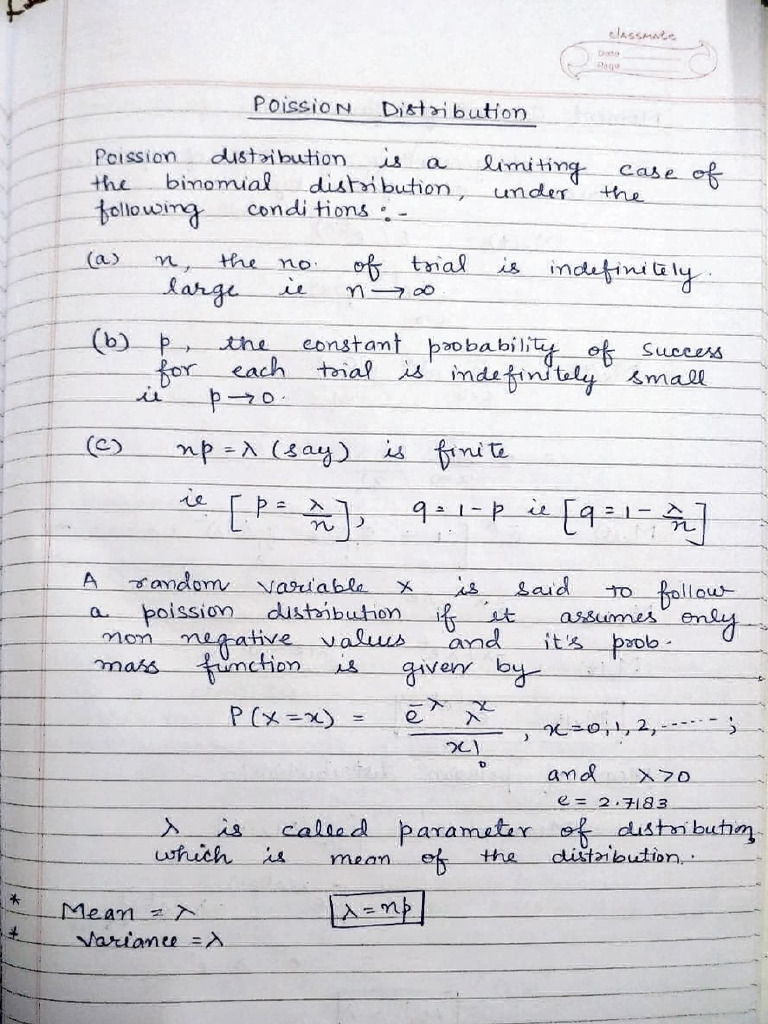 classmate
Date
Page
POISSION Distribution
Poission distribution is a limiting case of
the binomial distribution, under the
following conditions :-
(a) n, the no. of trial is indefinitely.
large ie n→∞
(b) p, the constant probability of success
for each trial is indefinitely small
ie p→0.
(c) np = λ (say) is finite
ie [p = λ/n], q = 1-p ie [q = 1 - λ/n]
A random variable x is said to follow
a poission distribution if it assumes only
non negative values and it's prob.
mass function is given by
P(X=x) = e^-λ λ^x / x! , x=0,1,2,------;
and λ>0
e = 2.7183
λ is called parameter of distribution,
which is mean of the distribution.
* Mean = λ λ = np
* Variance = λ